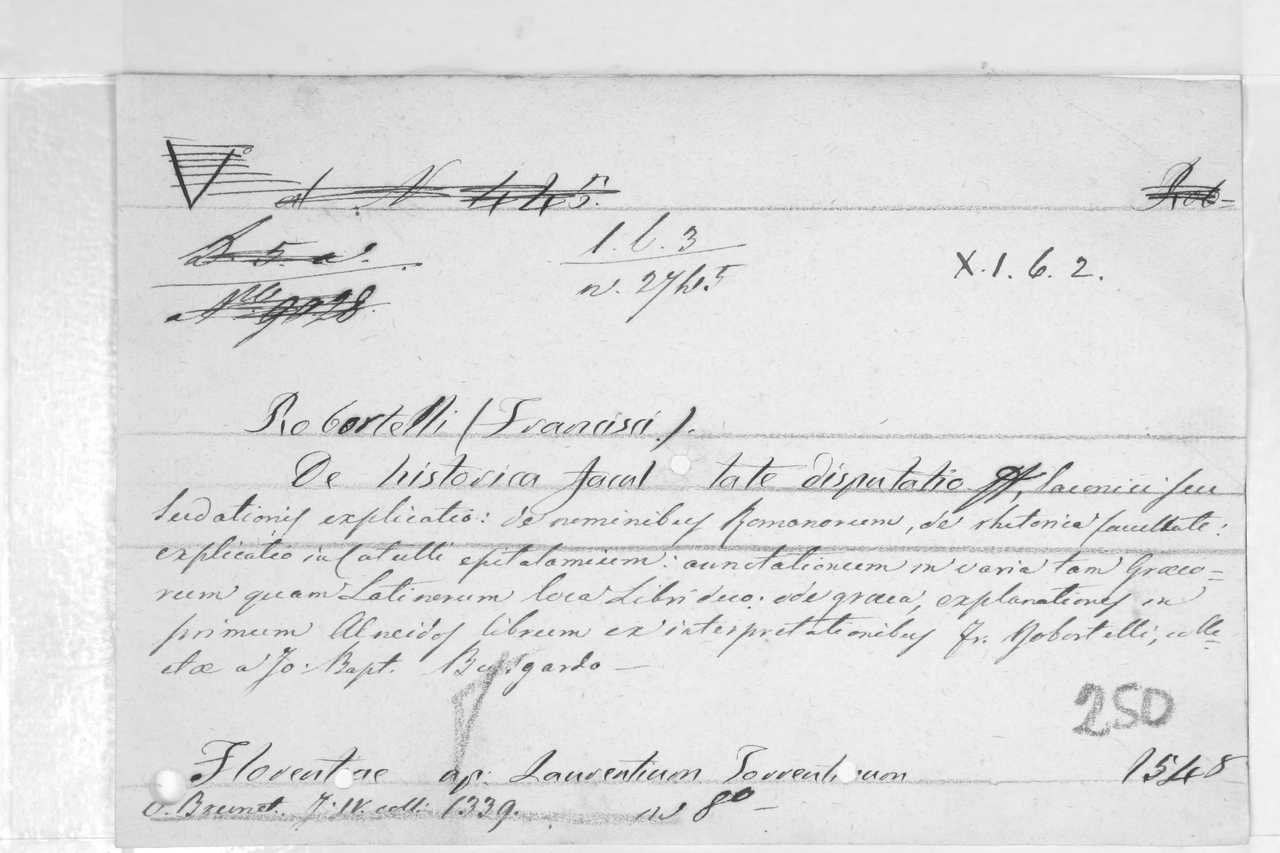 V° d N 445.
Rob-
B. 5. a.
1. 6. 3
X. 1. 6. 2.
Nro 9928
n. 2745
Robortelli (Francisci).
De historica facul tate disputatio, Laconici seu
sudationis explicatio: de nominibus Romanorum, de rhetorica facultate:
explicatio in Catulli epitalamium: annotationum in varia tam Græco-
rum quam Latinorum loca Libri duo: ode græca, explanationes in
primum Aeneidos librum ex interpretationibus Fr. Robortelli, colle-
ctæ a Jo: Bapt. Busgardo —
250
Florentiae ap: Laurentium Torrentinum 1548
v. Brunet. T: IV. coll: 1339. in 8° —